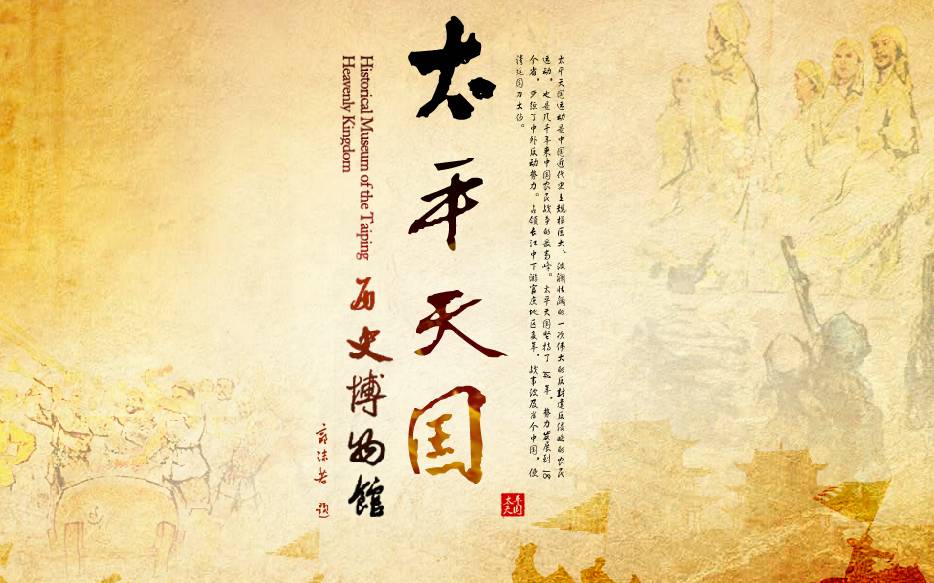 太平天运动是中国近代史上规模巨大、波澜壮阔的一次伟大的反封建反侵略的农民
运动，也是几千年来中国农民战争的最高峰。太平天国坚持了14年，势力发展到18
个省，了中外反动势力。占领长江中下游富庶地区多年，战事波及半个中国，使
清廷国力大伤。
太平天囯
Historical Museum of the Taiping
Heavenly Kingdom
历史博物馆
郭沫若 题
太平天国